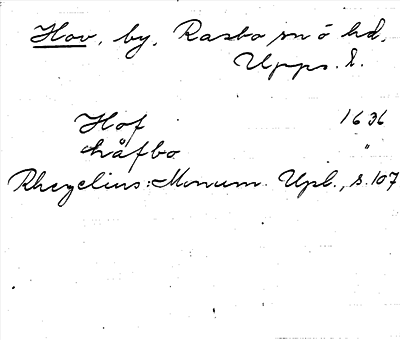 Hov, by, Rasbo sn o hd,
Upps. l.
Hof 1636
håfbo "
Rhezelius: Monum. Upl., s. 107